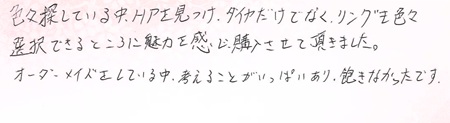 色々探している中、HPを見つけ、ダイヤだけでなく、リングを色々
選択できるところに魅力を感じ、購入させて頂きました。
オーダーメイズをしている中、考えることがいっぱいあり、飽きなかったです。